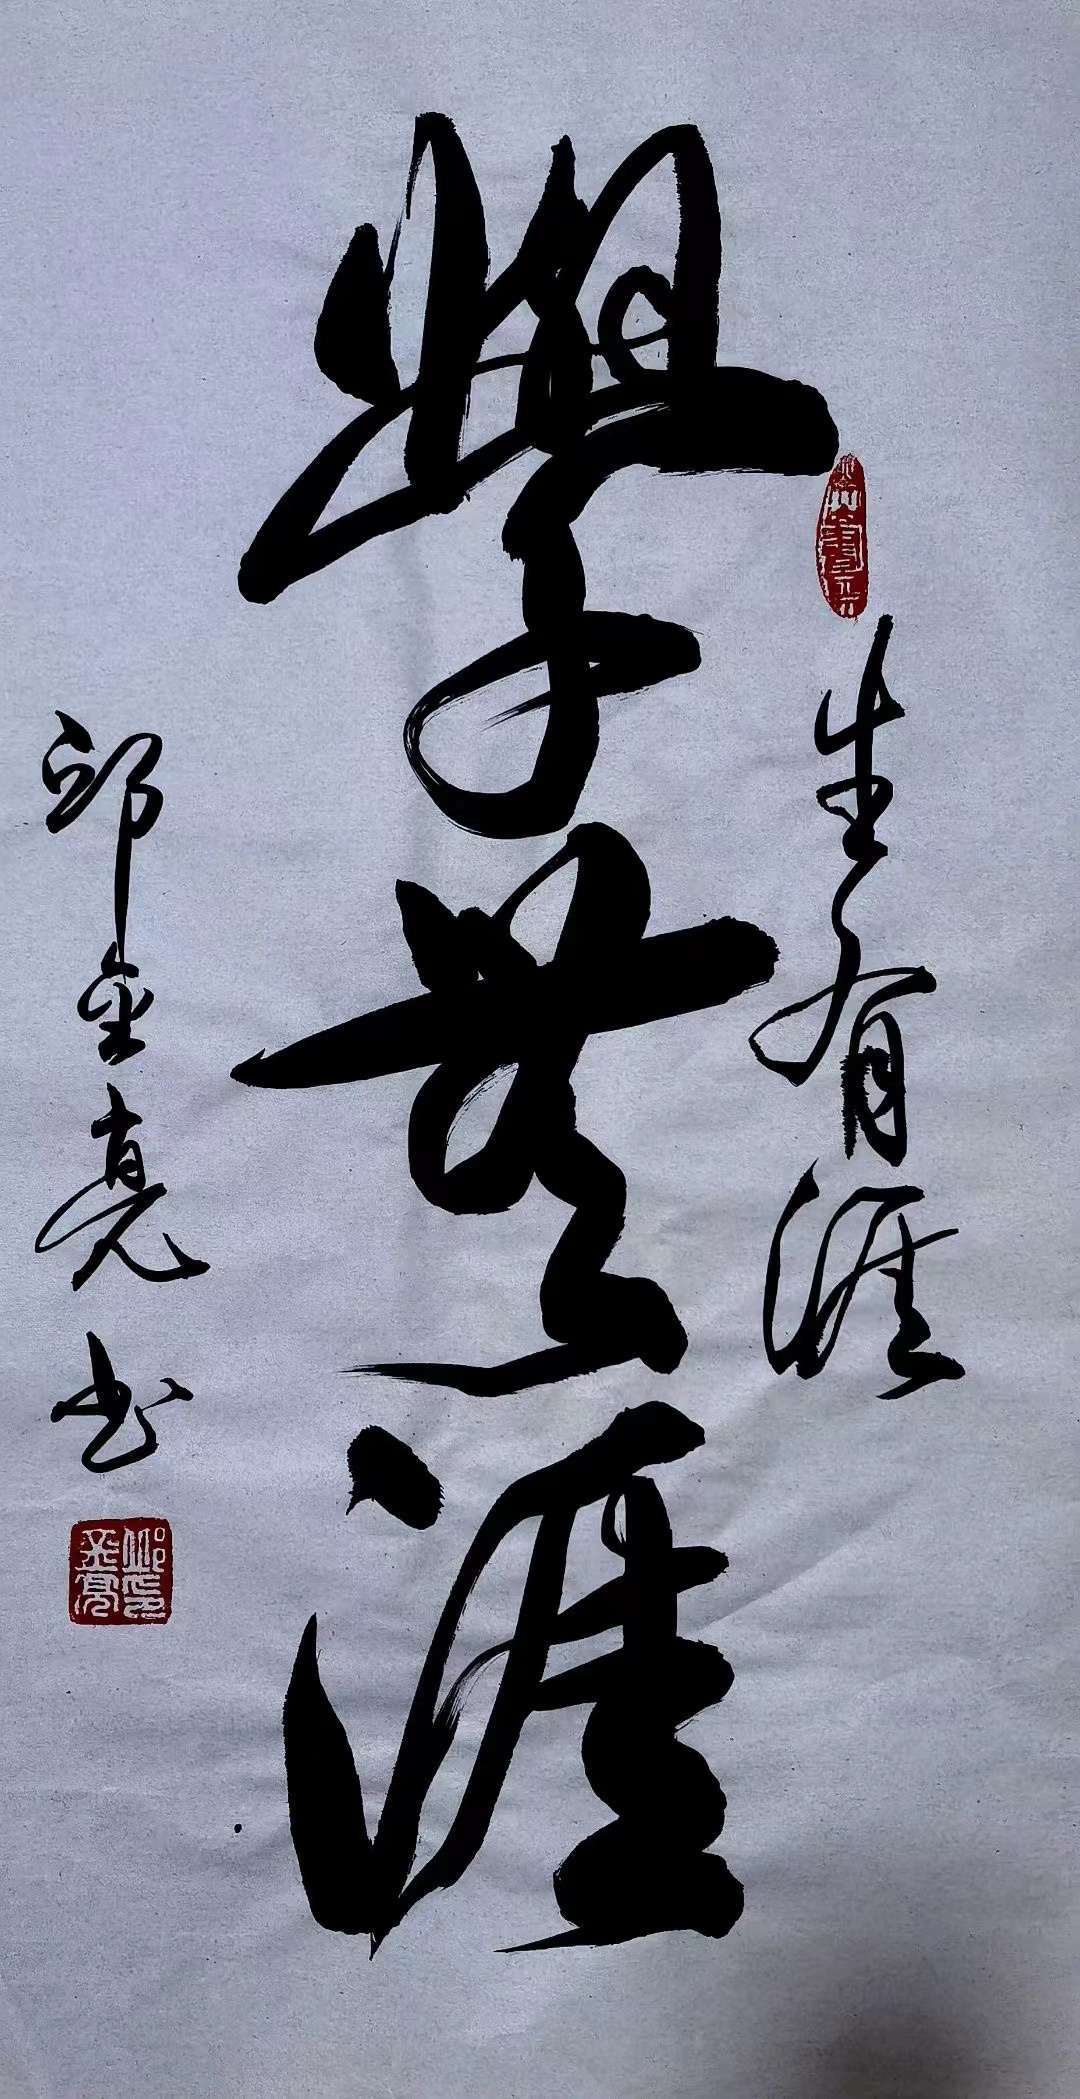 生有涯
學無涯
邱金亮书